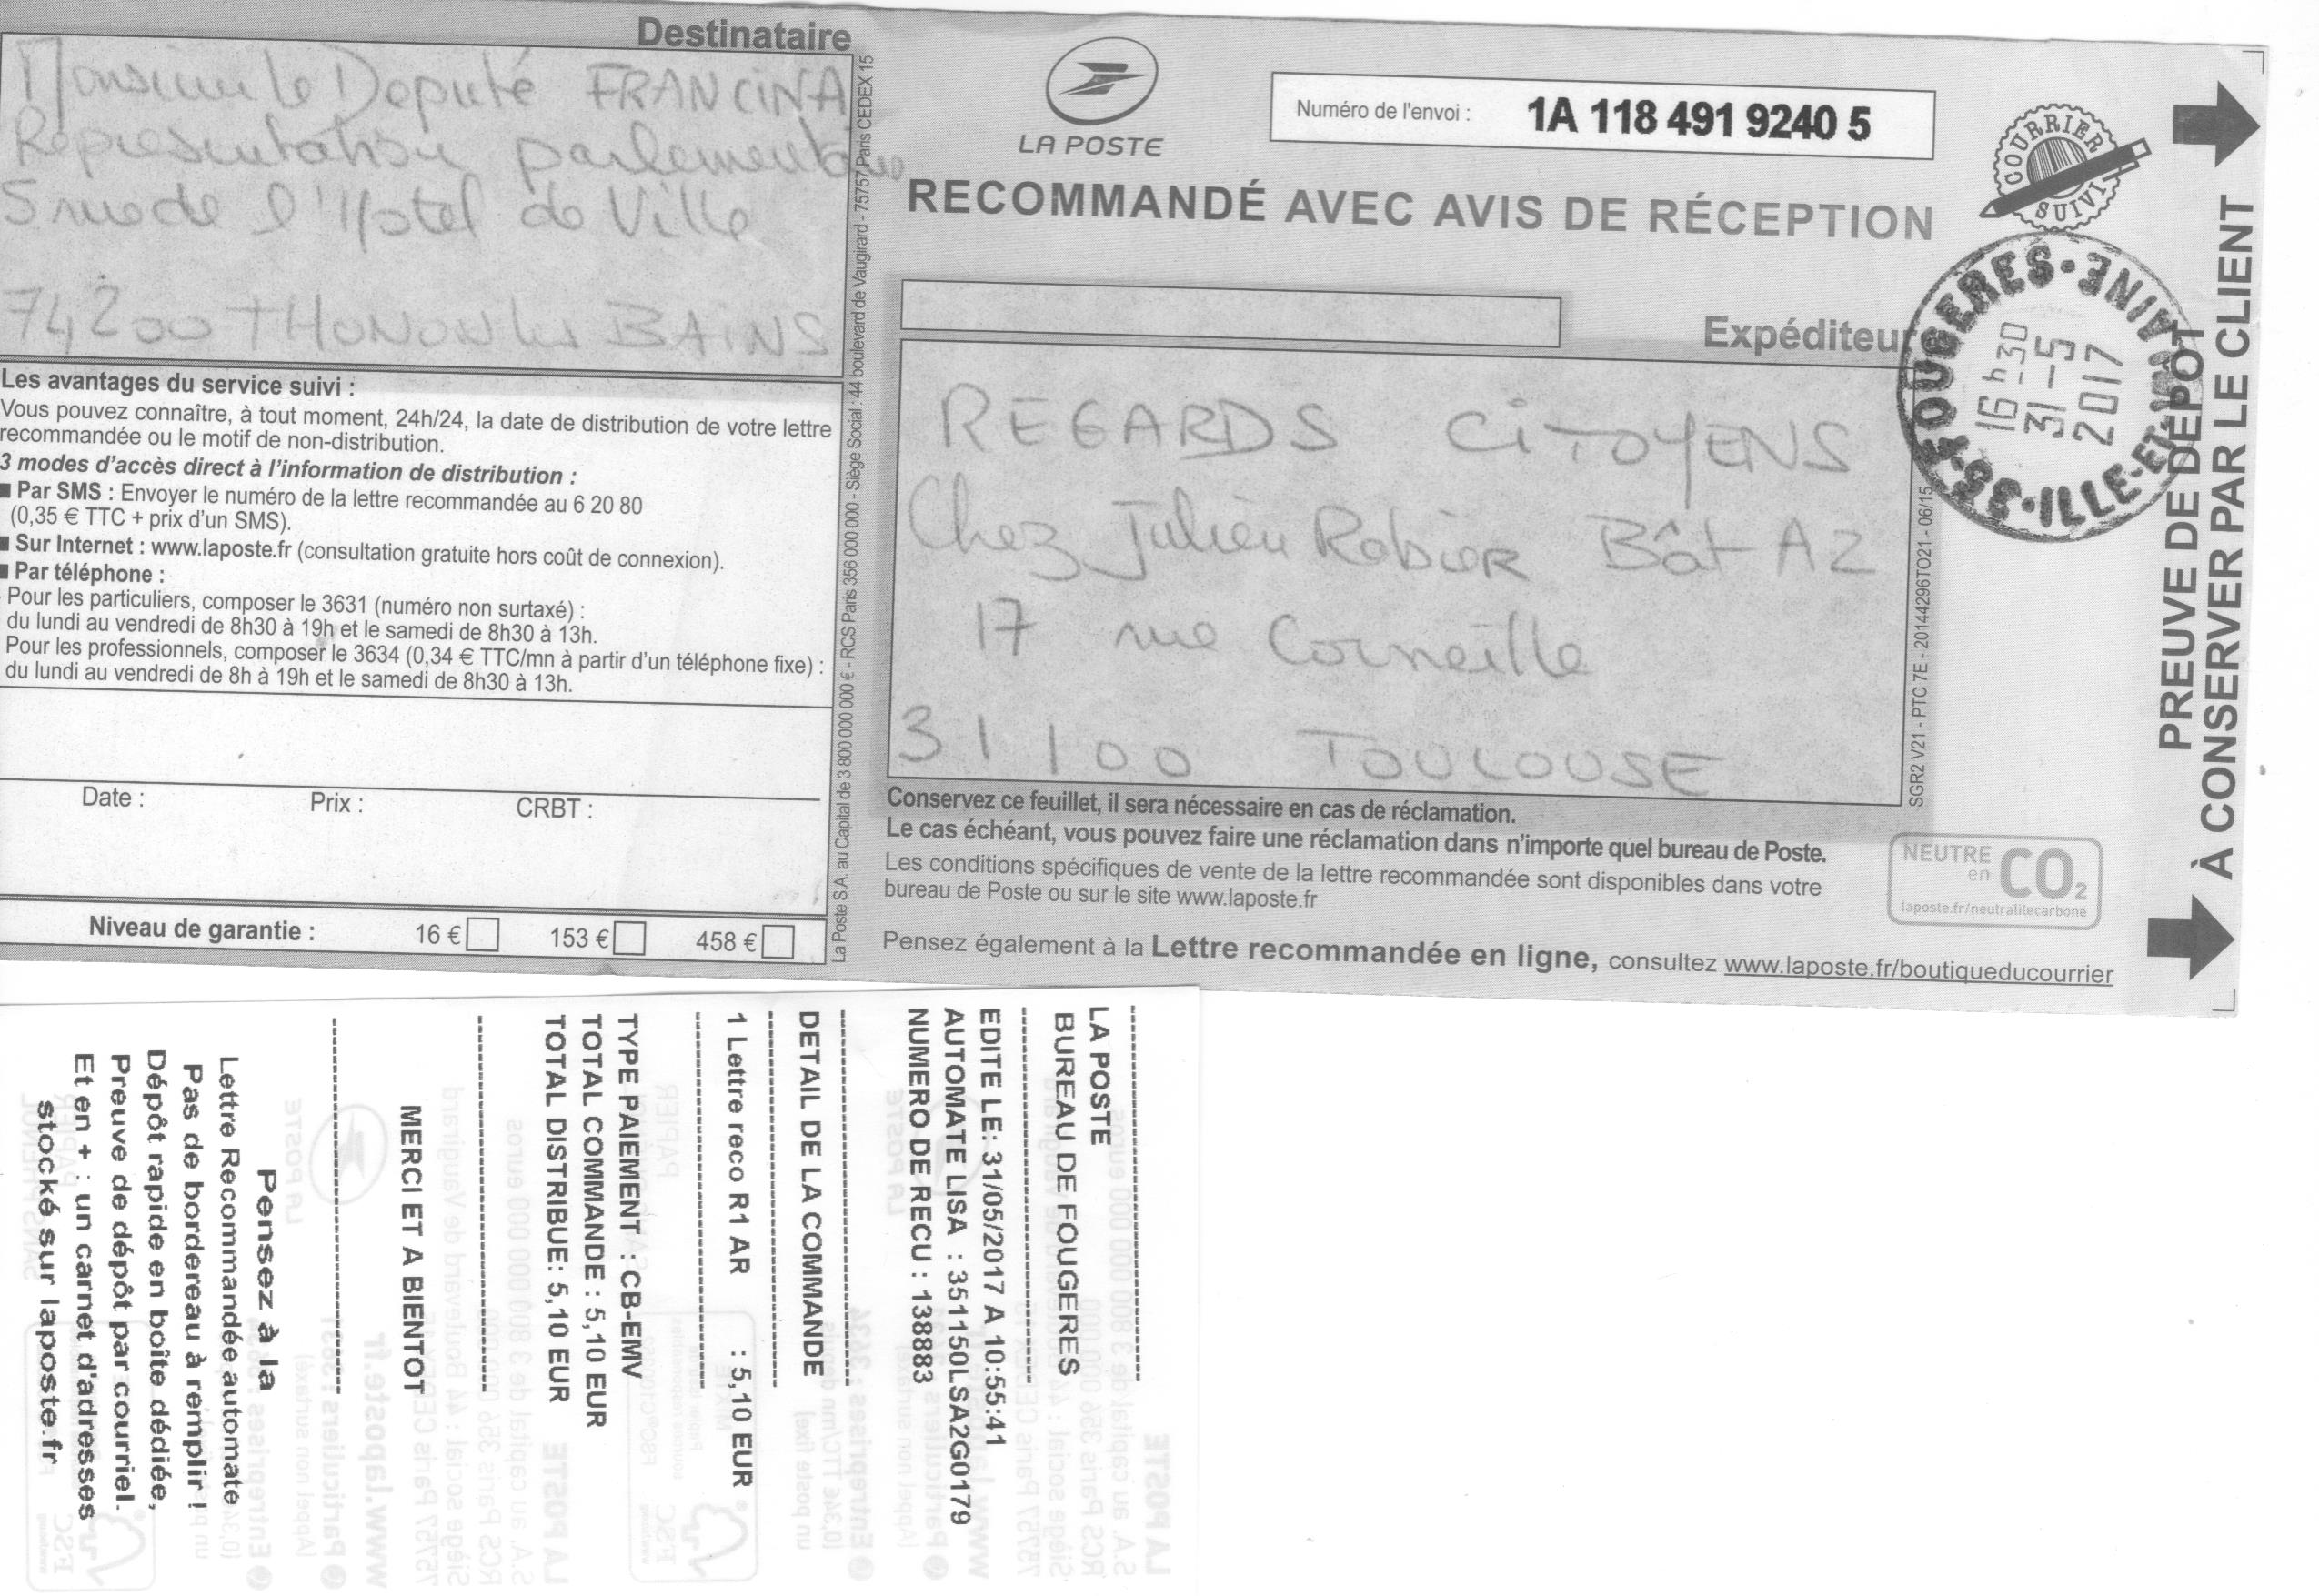 Destinataire
Monsieur le Deputé FRANCINA
Representation parlementaire
5 rue de l'Hotel de Ville
74200 THONON les BAINS
Les avantages du service suivi :
Vous pouvez connaître, à tout moment, 24h/24, la date de distribution de votre lettre
recommandée ou le motif de non-distribution.
3 modes d'accès direct à l'information de distribution :
■ Par SMS : Envoyer le numéro de la lettre recommandée au 6 20 80
(0,35 € TTC + prix d'un SMS).
■ Sur Internet : www.laposte.fr (consultation gratuite hors coût de connexion).
■ Par téléphone :
Pour les particuliers, composer le 3631 (numéro non surtaxé) :
du lundi au vendredi de 8h30 à 19h et le samedi de 8h30 à 13h.
Pour les professionnels, composer le 3634 (0,34 € TTC/mn à partir d'un téléphone fixe) :
du lundi au vendredi de 8h à 19h et le samedi de 8h30 à 13h.
Date : Prix : CRBT :
Niveau de garantie : 16 € 153 € 458 €
La Poste S.A. au Capital de 3 800 000 000 € - RCS Paris 356 000 000 - Siège Social : 44 boulevard de Vaugirard - 75757 Paris CEDEX 15
LA POSTE
Numéro de l'envoi : 1A 118 491 9240 5
RECOMMANDÉ AVEC AVIS DE RÉCEPTION
COURRIER SUIVI
Expéditeur
REGARDS CITOYENS
Chez Julien Rabier Bât A2
17 rue Corneille
31100 TOULOUSE
FOUGERES
35 - ILLE-ET-VILAINE
16h30
31-5
2017
SGR2 V21 - PTC 7E - 20144296TO21 - 06/15
Conservez ce feuillet, il sera nécessaire en cas de réclamation.
Le cas échéant, vous pouvez faire une réclamation dans n'importe quel bureau de Poste.
Les conditions spécifiques de vente de la lettre recommandée sont disponibles dans votre
bureau de Poste ou sur le site www.laposte.fr
Pensez également à la Lettre recommandée en ligne, consultez www.laposte.fr/boutiqueducourrier
NEUTRE en CO2
laposte.fr/neutralitecarbone
PREUVE DE DÉPÔT
À CONSERVER PAR LE CLIENT
LA POSTE
BUREAU DE FOUGERES
EDITE LE: 31/05/2017 A 10:55:41
AUTOMATE LISA : 351150LSA2G0179
NUMERO DE RECU : 138883
DETAIL DE LA COMMANDE
1 Lettre reco R1 AR : 5,10 EUR
TYPE PAIEMENT : CB-EMV
TOTAL COMMANDE : 5,10 EUR
TOTAL DISTRIBUE: 5,10 EUR
MERCI ET A BIENTOT
Pensez à la
Lettre Recommandée automate
Pas de bordereau à remplir !
Dépôt rapide en boîte dédiée,
Preuve de dépôt par courriel.
Et en + : un carnet d'adresses
stocké sur laposte.fr